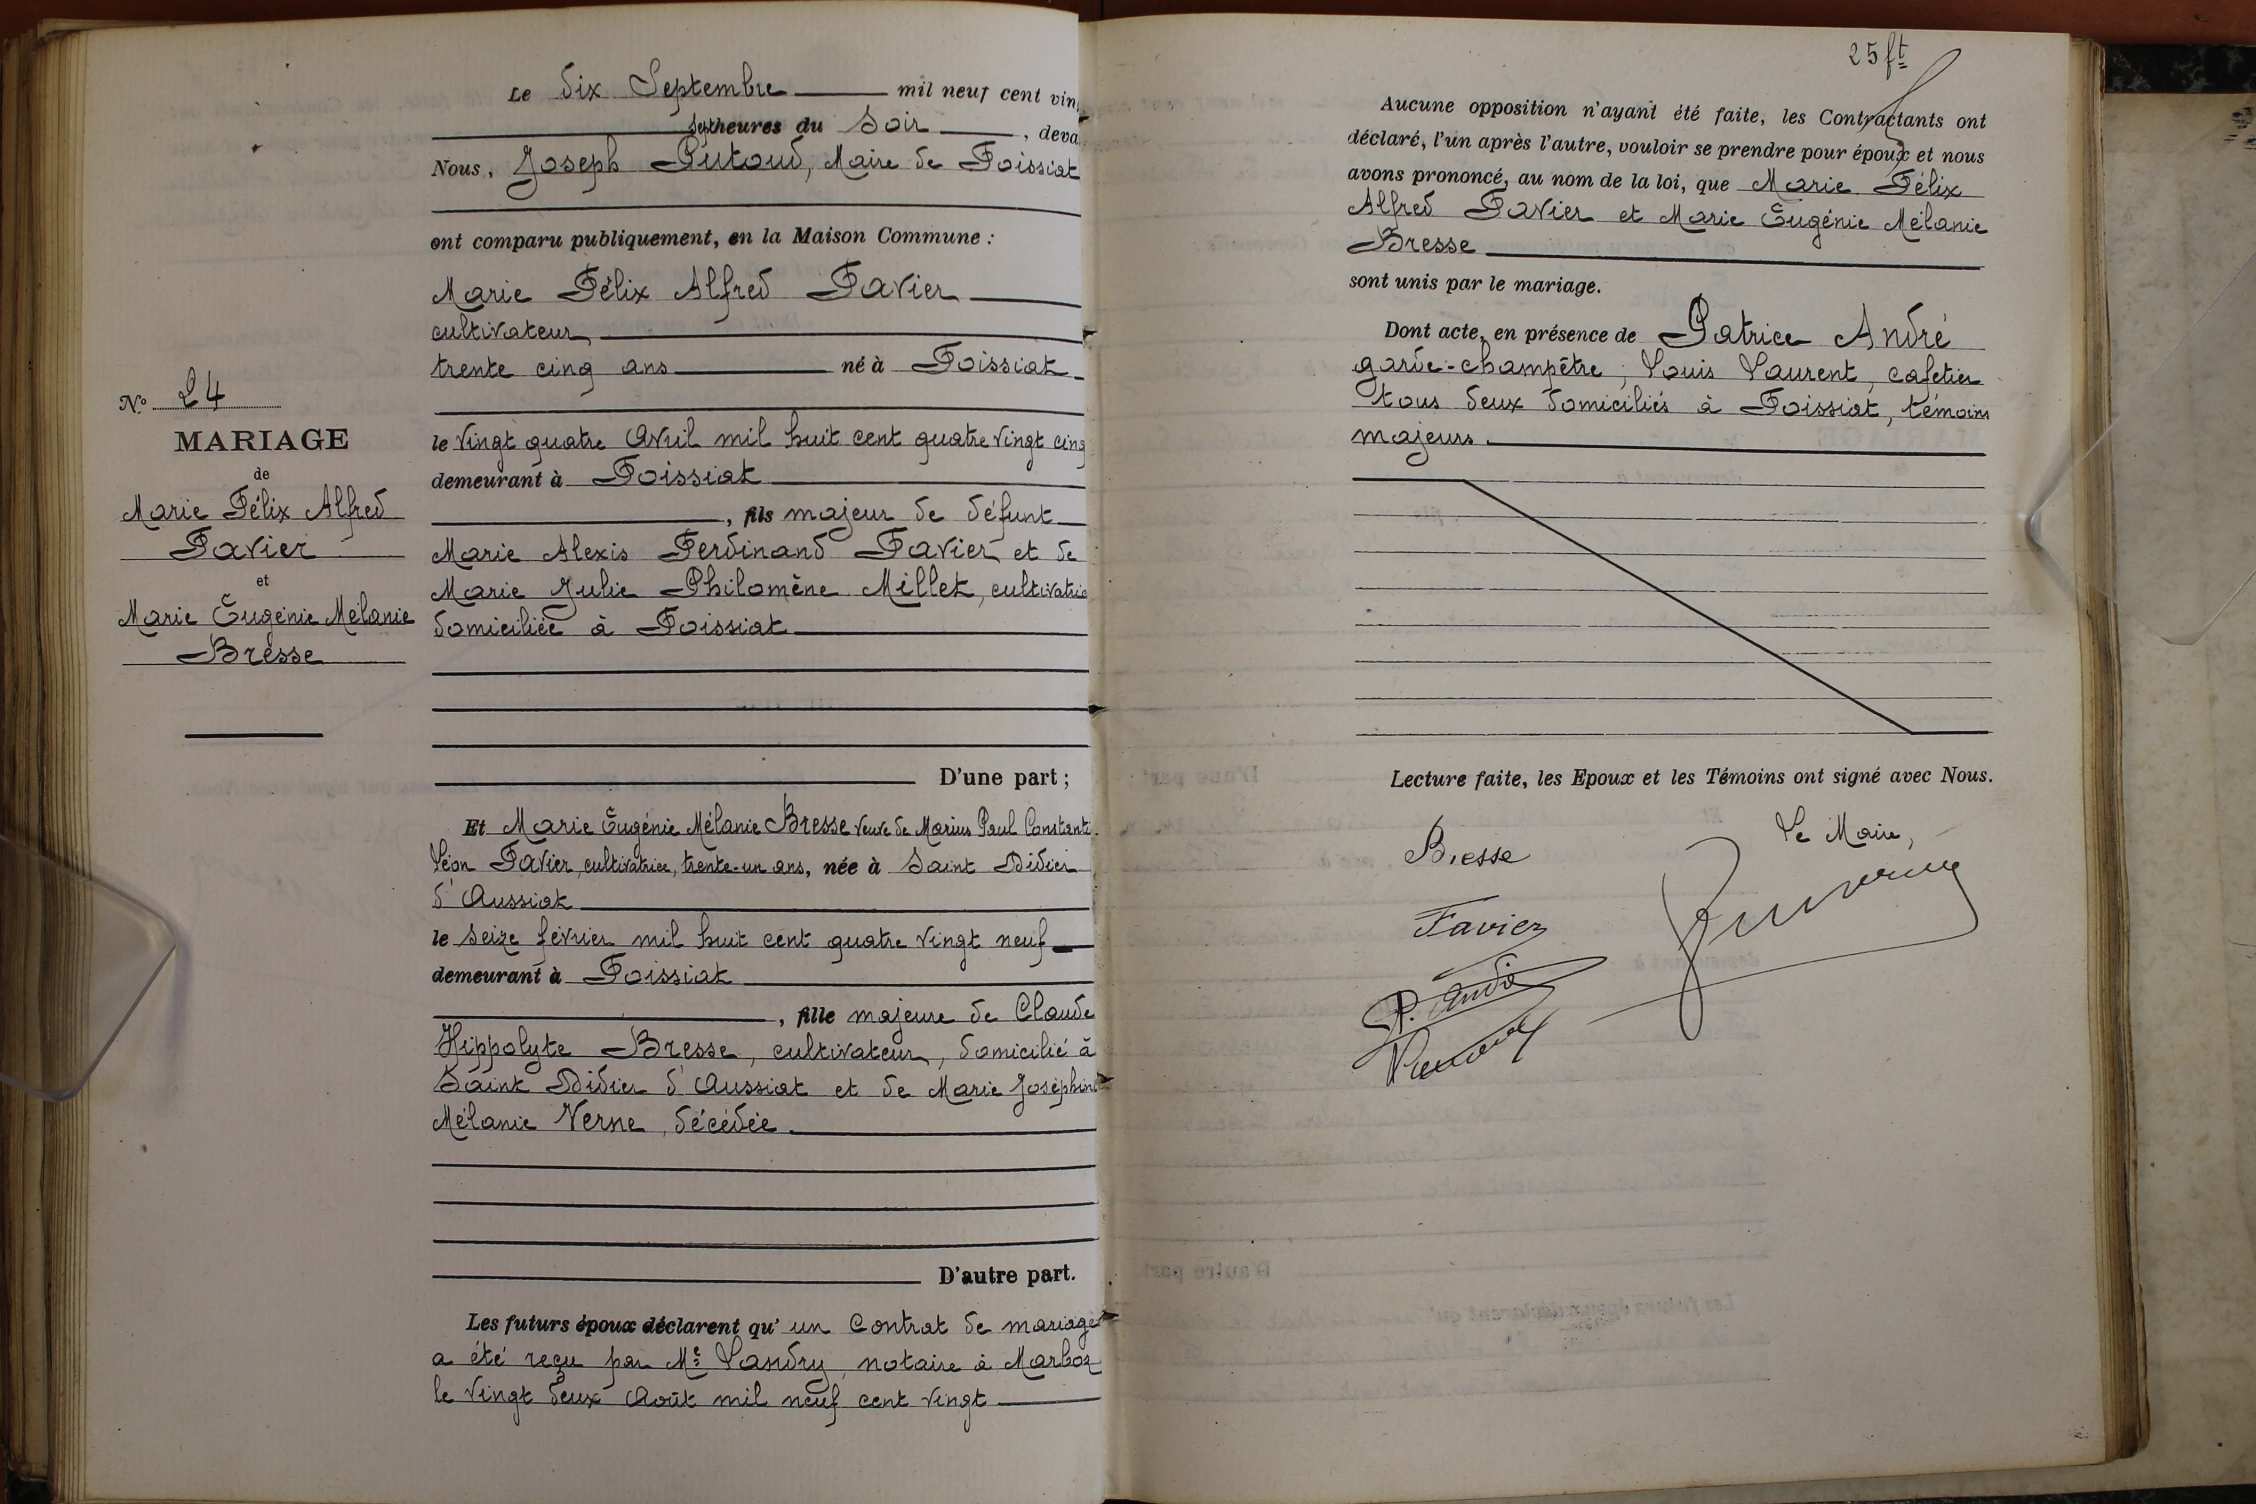 Le dix Septembre mil neuf cent vin
sept heures du Soir, deva
Nous, Joseph Putoud, Maire de Foissiat
ont comparu publiquement, en la Maison Commune :
Marie Félix Alfred Favier
cultivateur
trente cinq ans né à Foissiat
le vingt quatre Avril mil huit cent quatre vingt cinq
demeurant à Foissiat
, fils majeur de défunt
Marie Alexis Ferdinand Favier et de
Marie Julie Philomène Millet, cultivatrice
domiciliée à Foissiat
D'une part ;
Et Marie Eugénie Mélanie Bresse veuve de Marius Paul Constant
Léon Favier, cultivatrice, trente-un ans, née à Saint Didier
d'Aussiat
le seize février mil huit cent quatre vingt neuf
demeurant à Foissiat
, fille majeure de Claude
Hippolyte Bresse, cultivateur, domicilié à
Saint Didier d'Aussiat et de Marie Joséphine
Mélanie Verne, décédée.
D'autre part.
Les futurs époux déclarent qu'un Contrat de mariage
a été reçu par Me Landry, notaire à Marboz
le vingt deux Août mil neuf cent vingt
No 24
MARIAGE
de
Marie Félix Alfred
Favier
et
Marie Eugénie Mélanie
Bresse
25 ft
Aucune opposition n'ayant été faite, les Contractants ont
déclaré, l'un après l'autre, vouloir se prendre pour époux et nous
avons prononcé, au nom de la loi, que Marie Félix
Alfred Favier et Marie Eugénie Mélanie
Bresse
sont unis par le mariage.
Dont acte, en présence de Patrice André
garde-champêtre ; Louis Laurent, cafetier
tous deux domiciliés à Foissiat, témoins
majeurs.
Lecture faite, les Epoux et les Témoins ont signé avec Nous.
Le Maire,
Bresse
Favier
P. André